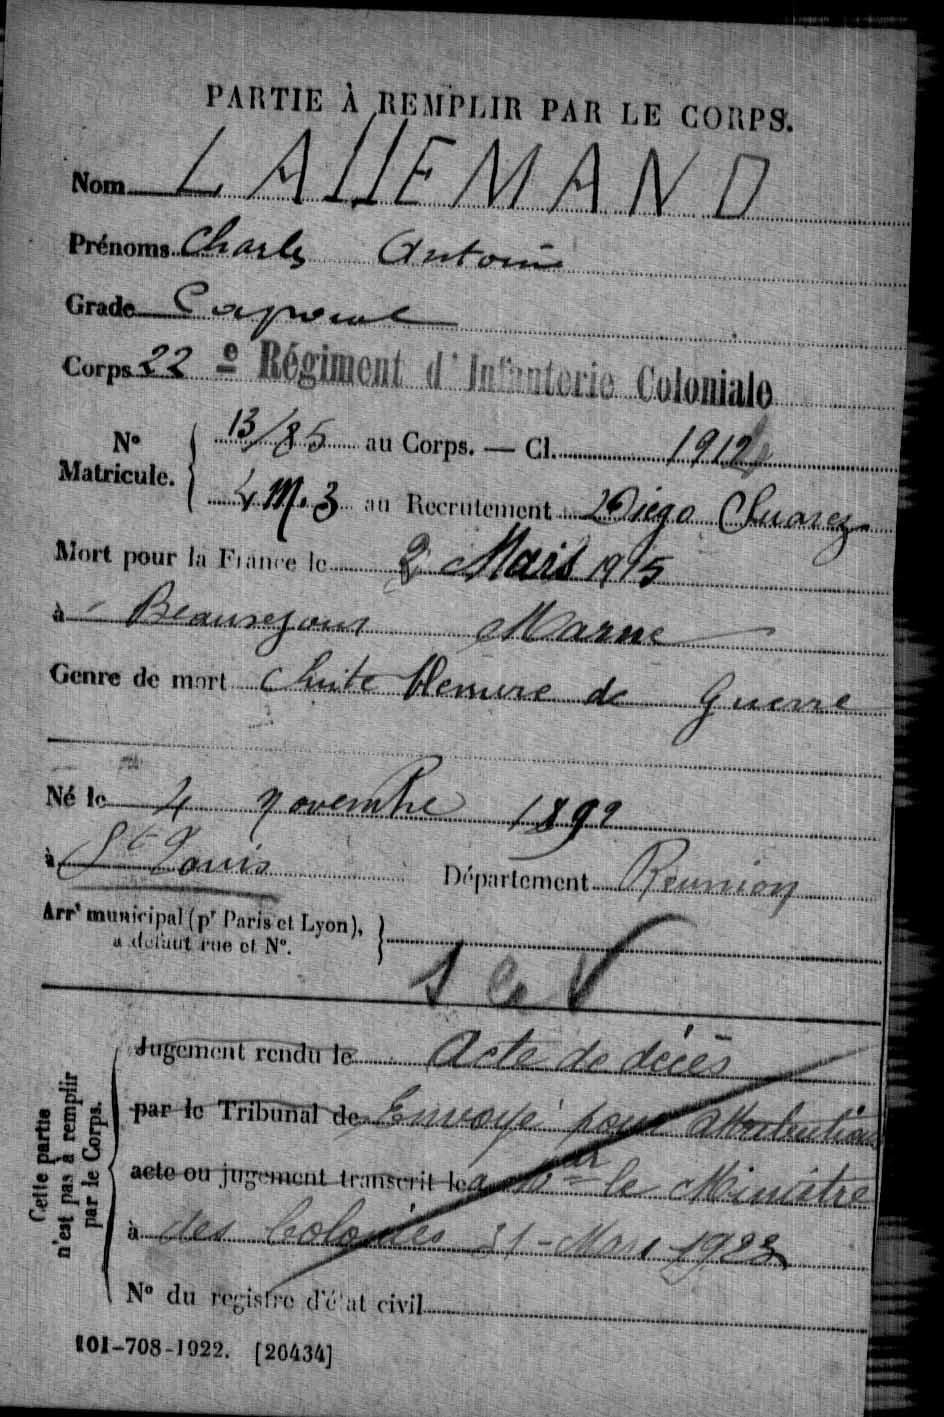 PARTIE À REMPLIR PAR LE CORPS.
Nom LALLEMAND
Prénoms Charles Antoine
Grade Caporal
Corps 22 e Régiment d'Infanterie Coloniale
N° Matricule. { 13/85 au Corps. — Cl. 1912
4 M. 3 au Recrutement Diégo Suarez
Mort pour la France le 2 Mars 1915
à Beauséjour Marne
Genre de mort Suite Blessure de Guerre
Né le 4 novembre 1892
à St Louis Département Réunion
Arrt municipal (pr Paris et Lyon), }
à défaut rue et N°.
Cette partie n'est pas à remplir par le Corps.
Jugement rendu le Acte de décès
par le Tribunal de Envoyé pour
acte ou jugement transcrit le à Mr le Ministre
à des Colonies 31 - Mars 1923
N° du registre d'état civil
101-708-1922. [26434]